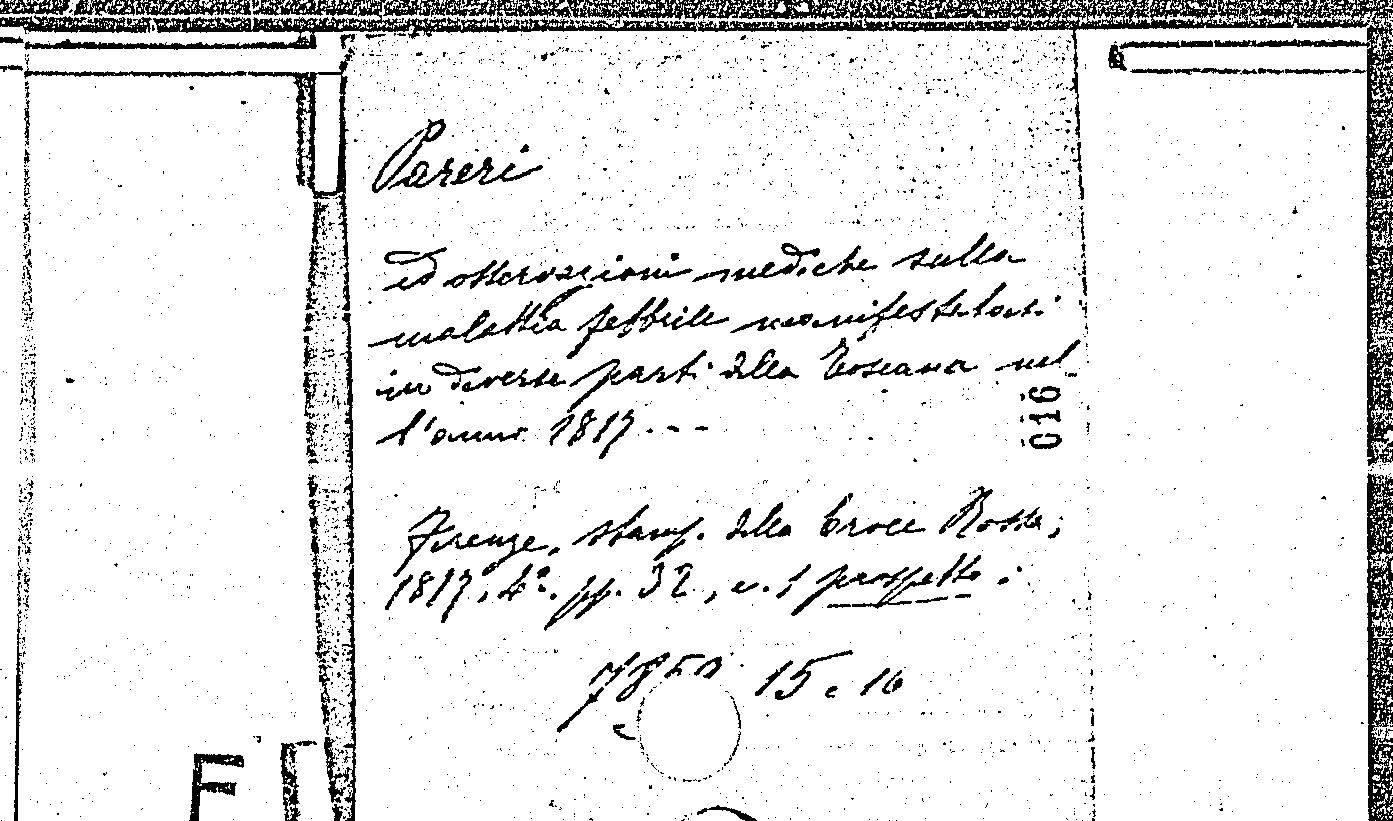 Pareri
ed osservazioni mediche sulla
malattia febbrile manifestatasi
in diverse parti della Toscana nel
l'anno 1817 - - -
016
Firenze, stamp. della Croce Rossa,
1817, 4º. pp. 32, e. 1 prospetto.
15. 16
F